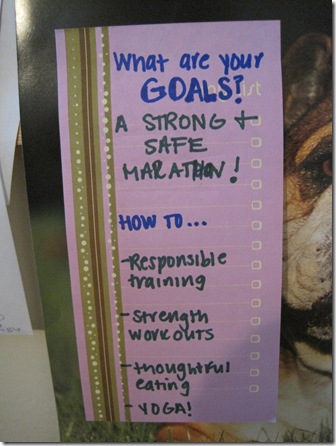 What are your
GOALS?
A STRONG +
SAFE
MARATHON!
HOW TO...
-Responsible
training
-Strength
WORKOUTS
-thoughtful
eating
-YOGA!